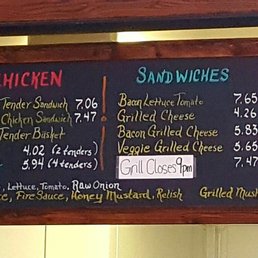 CHICKEN
Tender Sandwich 7.06
Chicken Sandwich 7.47
Tender Basket
4.02 (2 tenders)
5.94 (4 tenders)
SANDWICHES
Bacon Lettuce Tomato 7.65
Grilled Cheese 4.26
Bacon Grilled Cheese 5.83
Veggie Grilled Cheese 5.65
Grill Closes 9pm 7.47
, Lettuce, Tomato, Raw Onion
, Fire Sauce, Honey Mustard, Relish Grilled